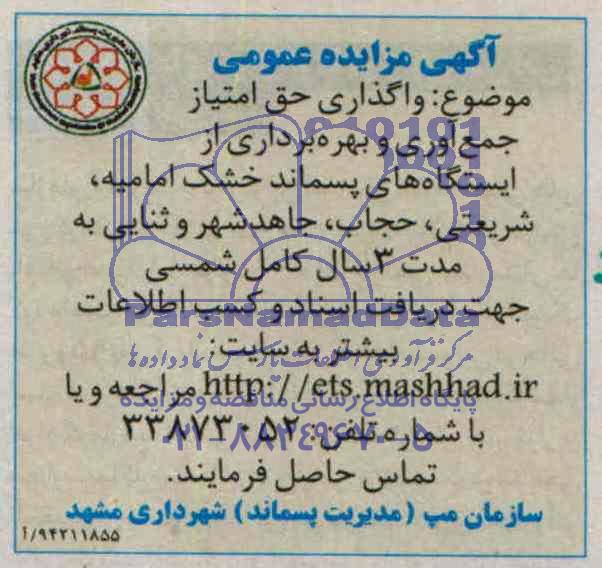 آگهی مزایده عمومی
موضوع: واگذاری حق امتیاز
جمع‌آوری و بهره‌برداری از
ایستگاه‌های پسماند خشک امامیه،
شریعتی، حجاب، جاهدشهر و ثنایی به
مدت ۳سال کامل شمسی
جهت دریافت اسناد و کسب اطلاعات
ParsNamadData
بیشتر به سایت:
http://ets.mashhad.ir مراجعه و یا
پایگاه اطلاع رسانی مناقصه و مزایده
با شماره تلفن: ۳۳۸۷۳۰۵۲
تماس حاصل فرمایند.
سازمان مپ (مدیریت پسماند) شهرداری مشهد
۹۴۲۱۱۸۵۵/آ